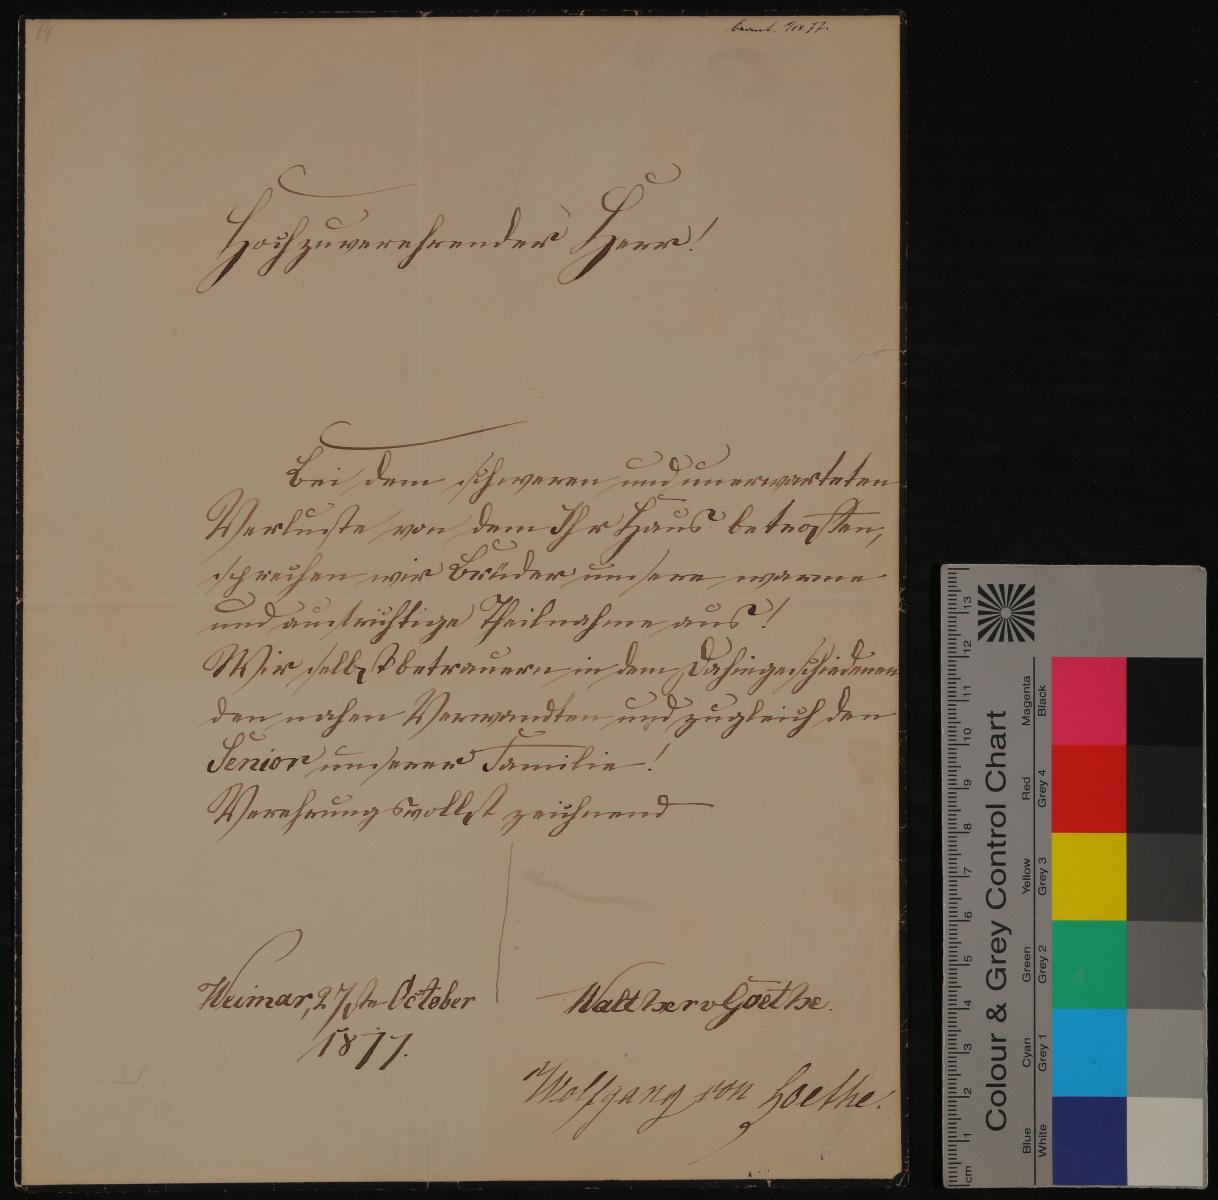 14
beant. 1/11.77.
Hochzuverehrender Herr!
Bei dem schweren und unerwarteten
Verluste von dem Ihr Haus betroffen,
sprechen wir Brüder unsere warme
und aufrichtige Theilnahme aus!
Wir selbst betrauern in dem Dahingeschiedenen
den nahen Verwandten und zugleich den
Senior unserer Familie!
Verehrungsvollst zeichnend
Weimar, 27ste October
1877.
Walther v Goethe.
Wolfgang von Goethe.
Colour & Grey Control Chart
Blue Cyan Green Yellow Red Magenta
White Grey 1 Grey 2 Grey 3 Grey 4 Black
cm 1 2 3 4 5 6 7 8 9 10 11 12 13